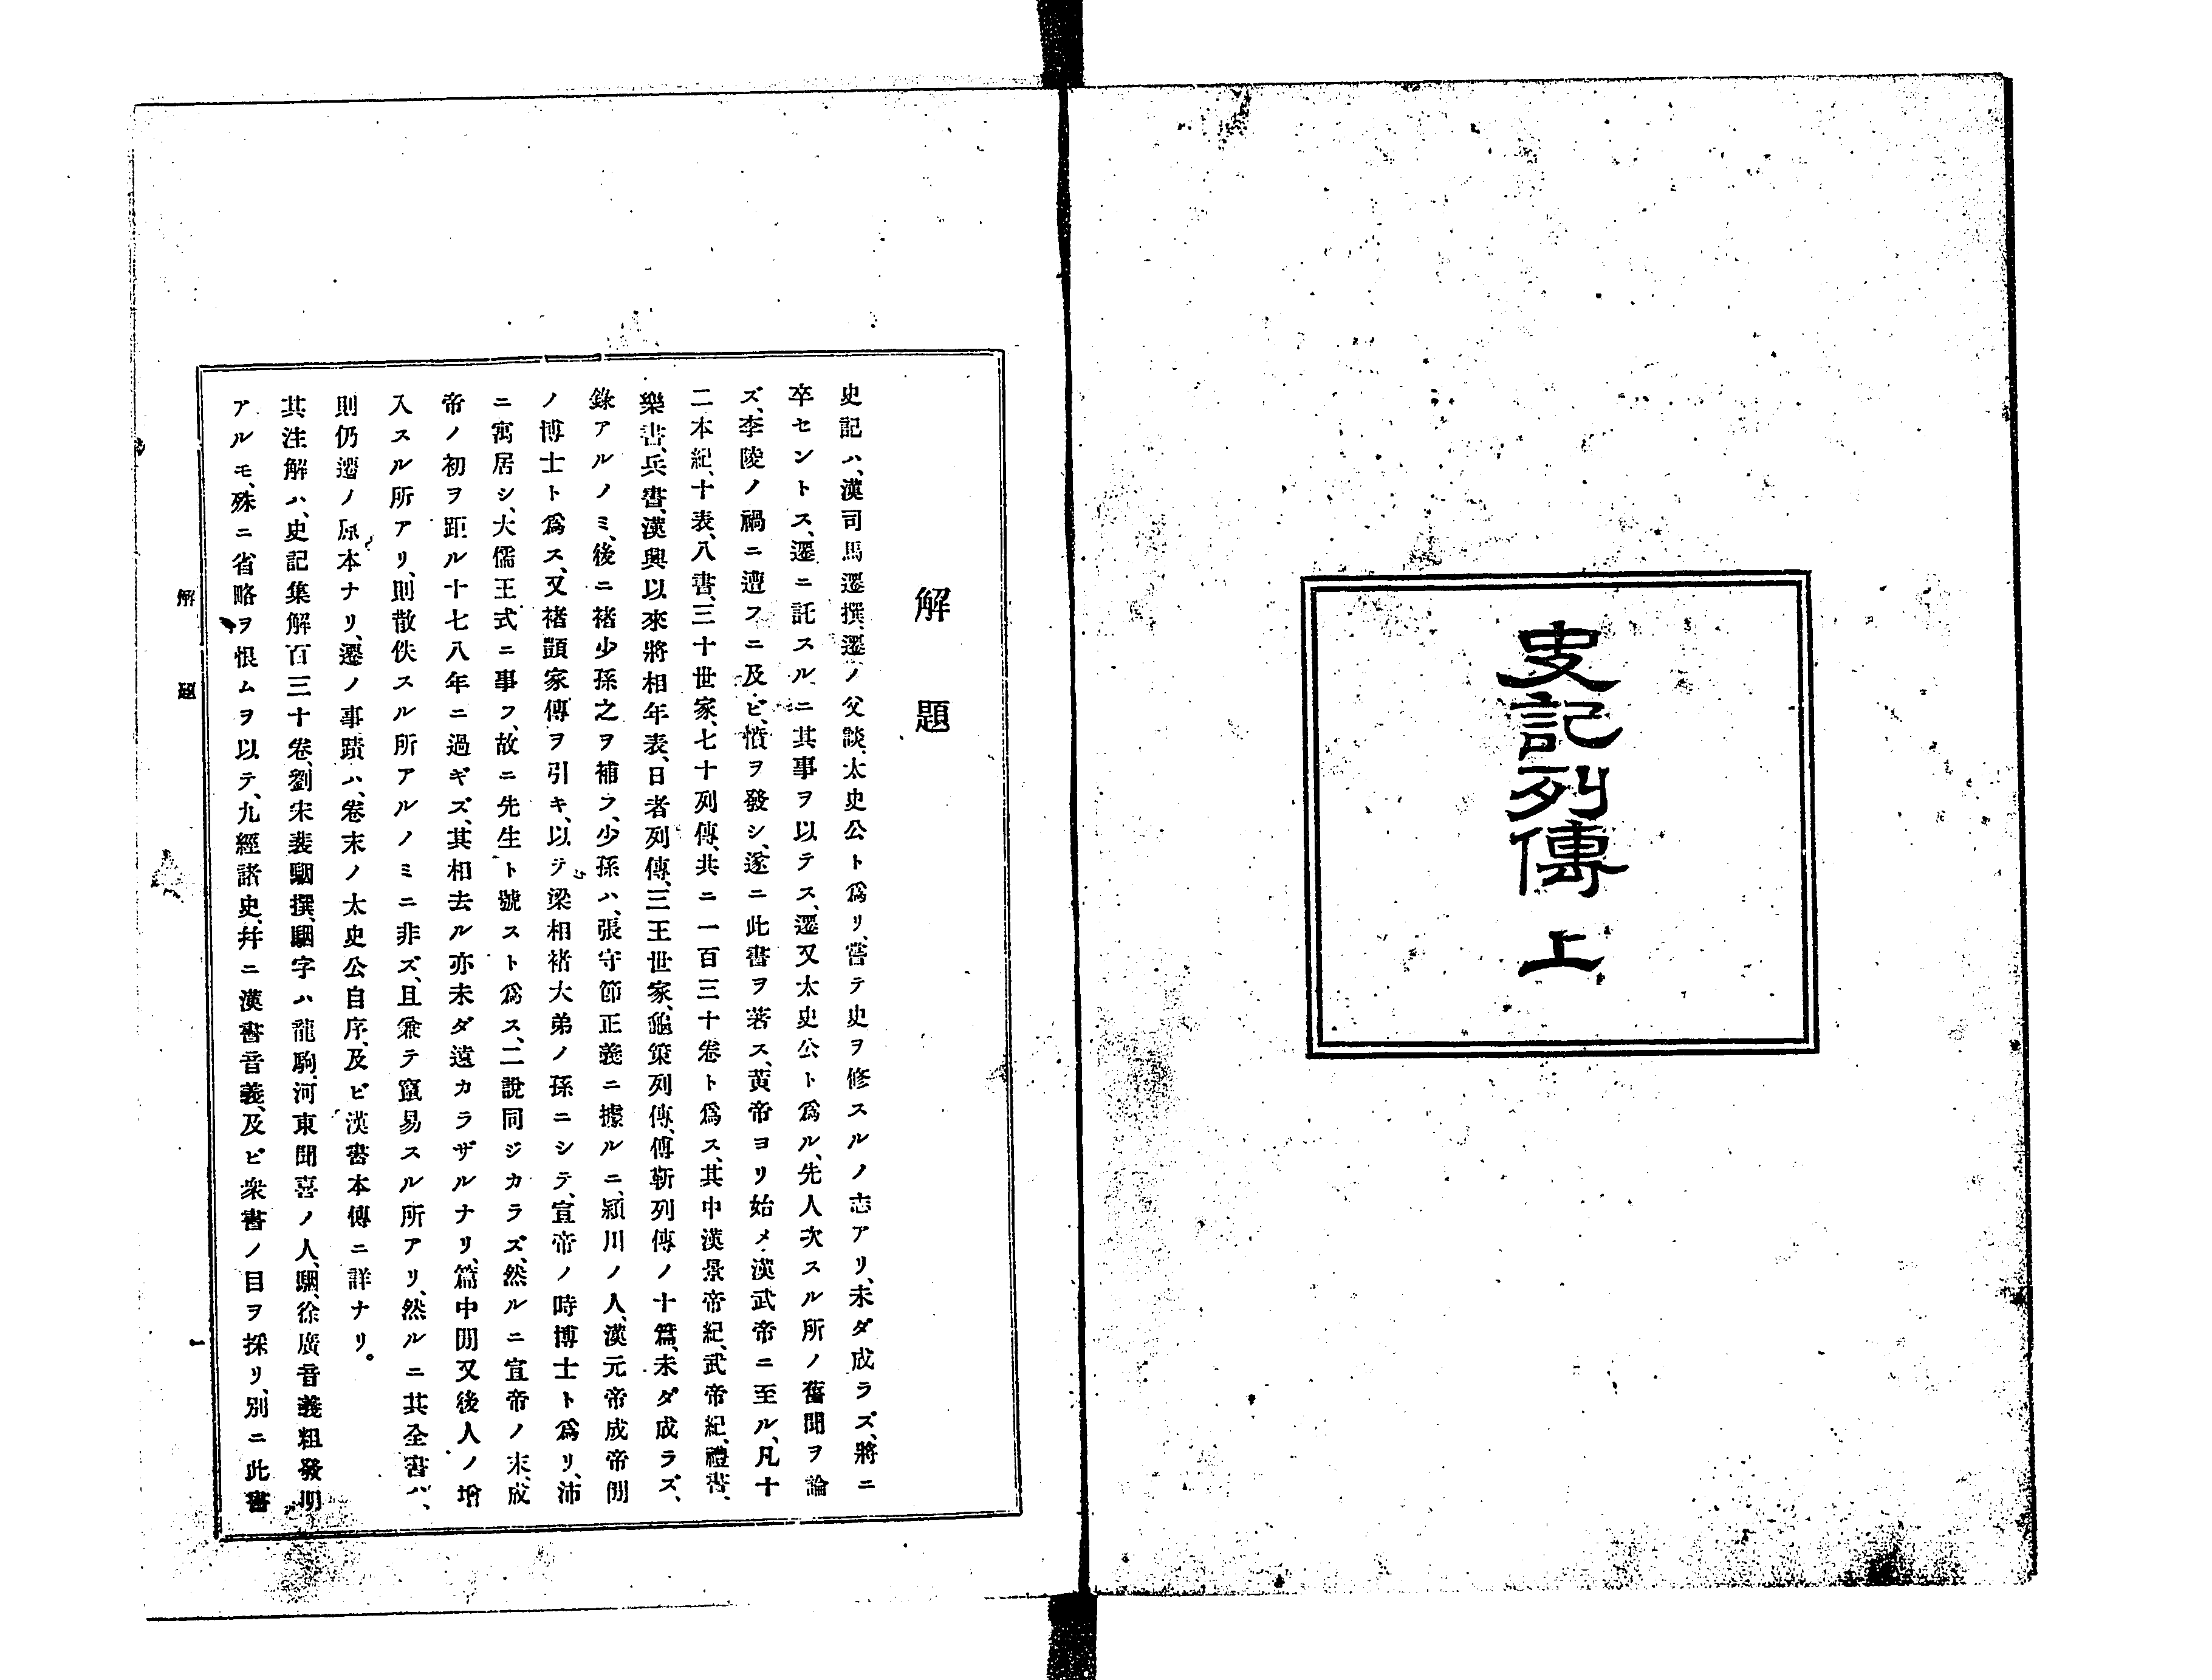 史記列傳 上
解題
史記ハ、漢司馬遷撰、遷ノ父談、太史公ト爲リ、嘗テ史ヲ修スルノ志アリ、未ダ成ラズ、將ニ
卒セントス、遷ニ託スルニ其事ヲ以テス、遷又太史公ト爲ル、先人次スル所ノ舊聞ヲ論
ズ、李陵ノ禍ニ遭フニ及ビ、憤ヲ發シ、遂ニ此書ヲ著ス、黄帝ヨリ始メ漢武帝ニ至ル、凡十
二本紀、十表、八書、三十世家、七十列傳、共ニ一百三十卷ト爲ス、其中漢景帝紀、武帝紀、禮書、
樂書、兵書、漢興以來將相年表、日者列傳、三王世家、龜策列傳、傅靳列傳ノ十篇、未ダ成ラズ、
錄アルノミ、後ニ褚少孫之ヲ補フ、少孫ハ、張守節正義ニ據ルニ、潁川ノ人、漢元帝成帝間
ノ博士ト爲ス、又褚顗家傳ヲ引キ、以テ梁相褚大弟ノ孫ニシテ、宣帝ノ時博士ト爲リ、沛
ニ寓居シ、大儒王式ニ事フ、故ニ先生ト號スト爲ス、二說同ジカラズ、然ルニ宣帝ノ末、成
帝ノ初ヲ距ル十七八年ニ過ギズ、其相去ル亦未ダ遠カラザルナリ、篇中間又後人ノ增
入スル所アリ、則散佚スル所アルノミニ非ズ、且兼テ竄易スル所アリ、然ルニ其全書ハ、
則仍遷ノ原本ナリ、遷ノ事蹟ハ、卷末ノ太史公自序、及ビ漢書本傳ニ詳ナリ。
其注解ハ、史記集解百三十卷、劉宋裴駰撰、駰字ハ龍駒、河東聞喜ノ人、駰、徐廣音義粗發明
アルモ、殊ニ省略ヲ恨ムヲ以テ、九經諸史、幷ニ漢書音義、及ビ衆書ノ目ヲ採リ、別ニ此書
解題
一